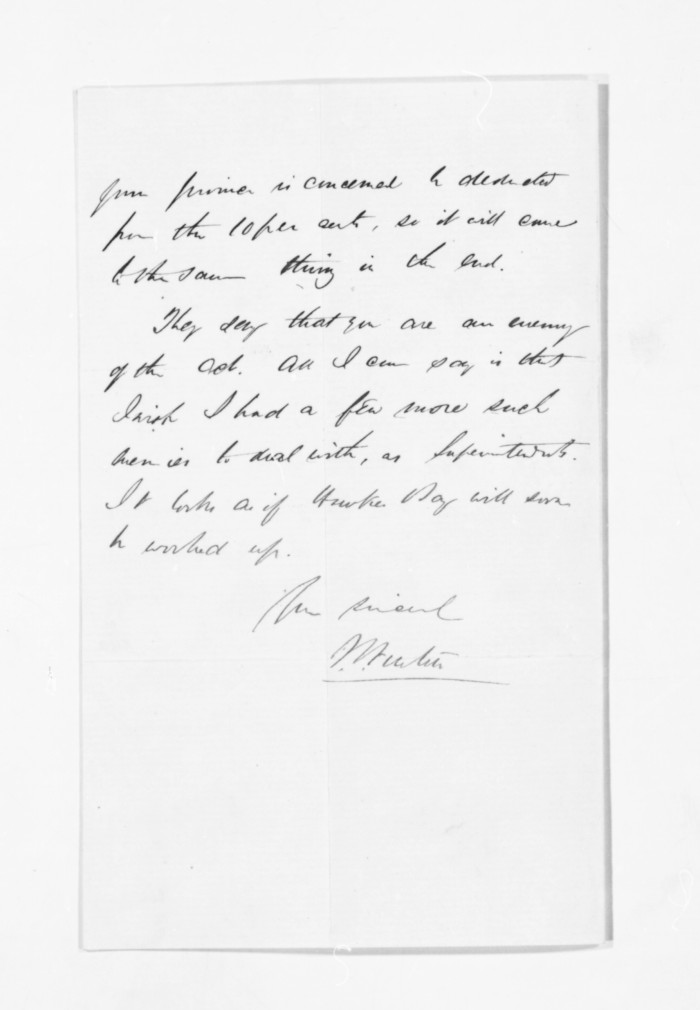 your province is concerned be deducted
from the 10 per cents, so it will come
to the same thing in the end.
They say that you are an enemy
of the Act. All I can say is that
I wish I had a few more such
enemies to deal with, as Superintendents.
It looks as if Hawkes Bay will soon
be worked up.
Yours sincerely